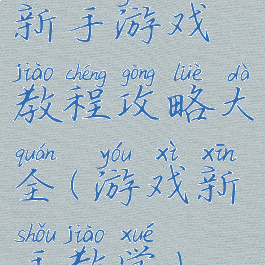 新手游戏
jiào chéng gōng lüè dà
教程攻略大
quán yóu xì xīn
全(游戏新
shǒu jiào xué
手教学)